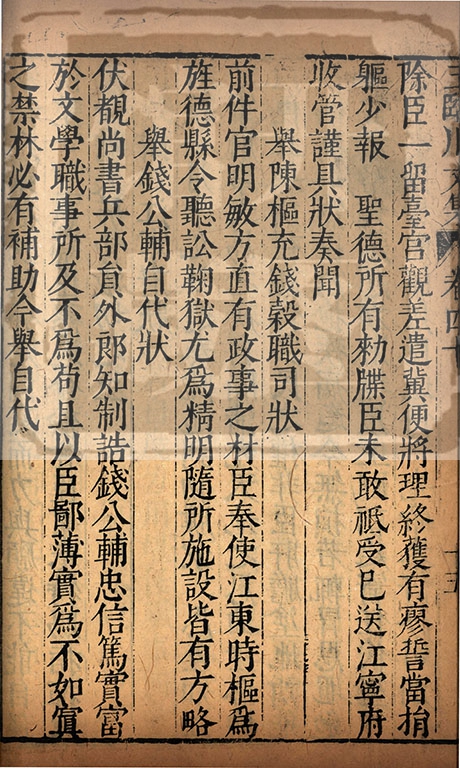 王臨川文集 卷四十 十五
除臣一留臺宮觀差遣冀便將理終獲有瘳誓當捐
軀少報 聖德所有勑牒臣未敢祗受已送江寧府
收管謹具狀奏聞
舉陳樞充錢穀職司狀
前件官明敏方直有政事之材臣奉使江東時樞爲
旌德縣令聽訟鞫獄尤爲精明隨所施設皆有方略
舉錢公輔自代狀
伏覩尚書兵部員外郎知制誥錢公輔忠信篤實富
於文學職事所及不爲苟且以臣鄙薄實爲不如窴
之禁林必有補助今舉自代